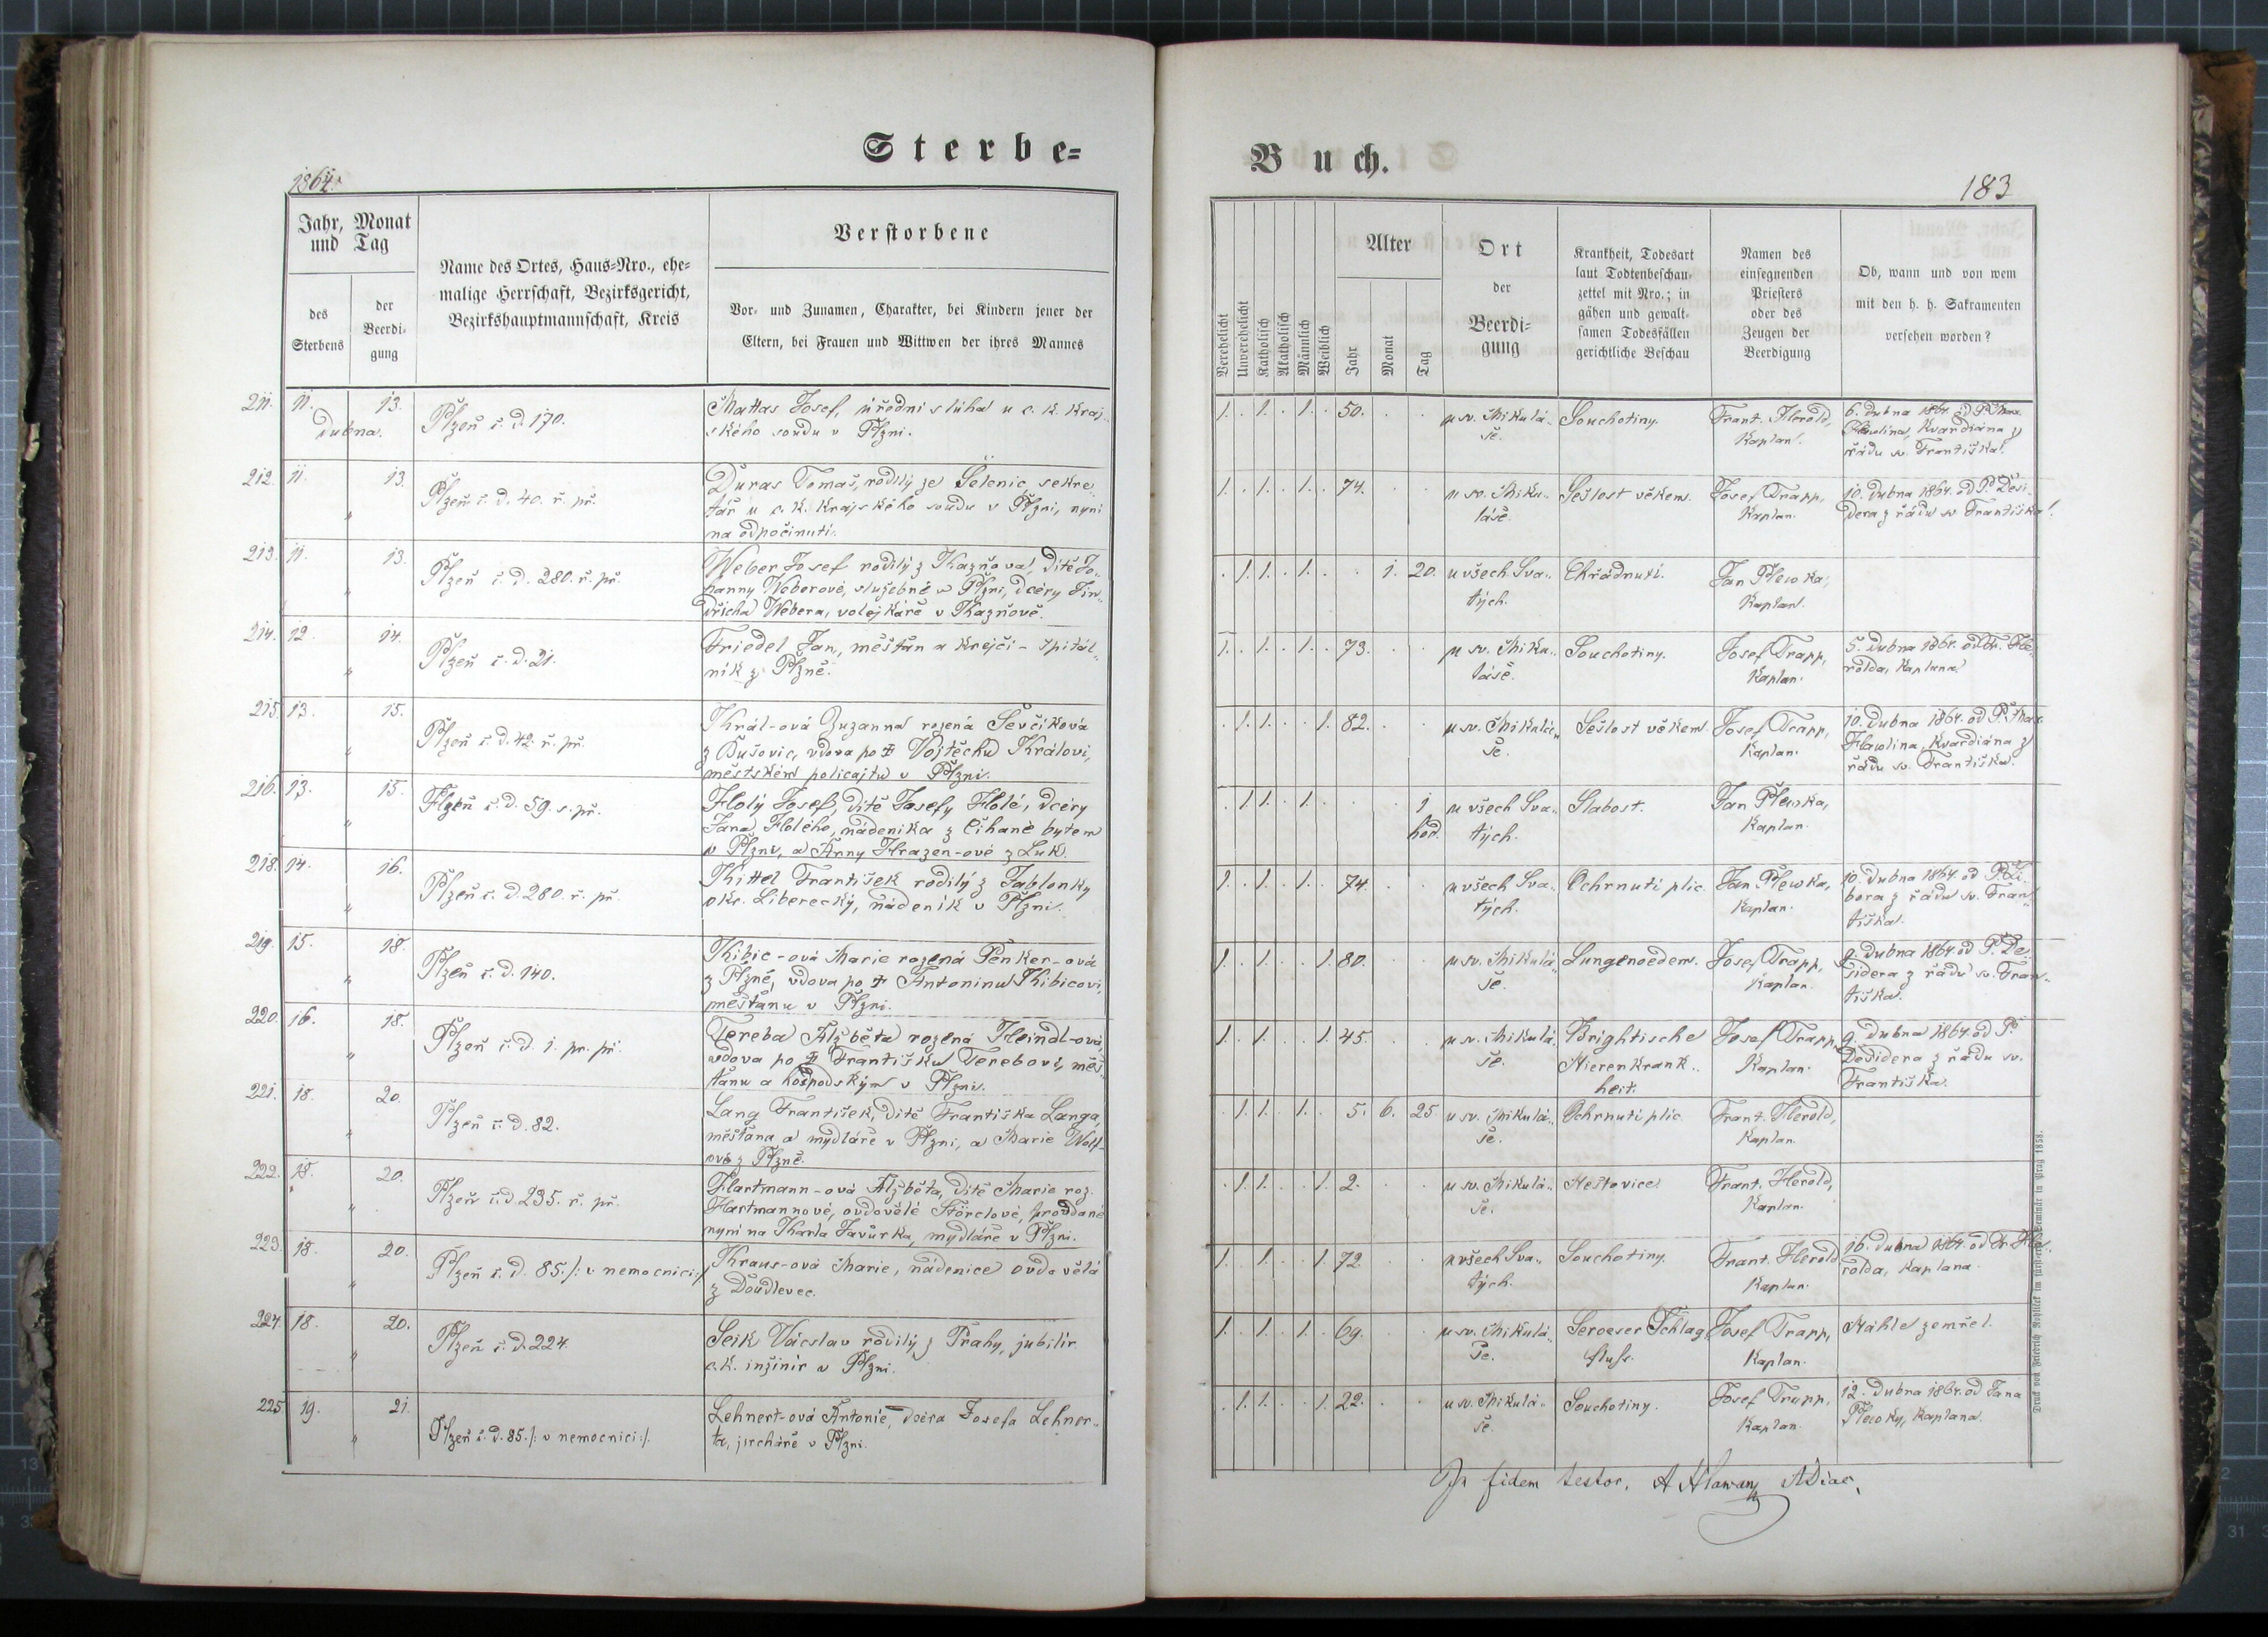 Sterbe=
1864.
Jahr, Monat
und Tag
des
Sterbens
der
Beerdi-
gung
Name des Ortes, Haus-Nro., ehe-
malige Herrschaft, Bezirksgericht,
Bezirkshauptmannschaft, Kreis
Verstorbene
Vor- und Zunamen, Charakter, bei Kindern jener der
Eltern, bei Frauen und Wittwen der ihres Mannes
211. 11. 13.
dubna.
Plzeň č. d. 170.
Mattas Josef, úřední sluha u c. k. kraj-
ského soudu v Plzni.
212. 11. 13.
"
Plzeň č. d. 40. ř. př.
Duras Tomaš, rodilý ze Selenic sekre-
tář u c. k. krajského soudu v Plzni, nyní
na odpočinutí.
213. 11. 13.
"
Plzeň č. d. 280. ř. př.
Weber Josef rodilý z Kazňova, dítě Jo-
hanny Weberové, služebné v Plzni, dcéry Jin-
dřicha Webera, volejkáře v Kazňově.
214. 12. 14.
"
Plzeň č. d. 21.
Friedel Jan, měšťan a krejčí - špitál-
ník z Plzně.
215. 13. 15.
"
Plzeň č. d. 42. ř. př.
Král-ová Zuzanna rozená Ševčíková
z Bušovic, vdova po ✝ Vojtěchu Královi,
městském policajtu v Plzni.
216. 13. 15.
"
Plzeň č. d. 59. s. př.
Holý Josef, dítě Josefy Holé, dcéry
Jana Holého, nádeníka z Číhané bytem
v Plzni, a Anny Hrazen-ové z Luk.
218. 14. 16.
"
Plzeň č. d. 280. ř. př.
Kittel František rodilý z Jablonky
okr. Liberecký, nádeník v Plzni.
219. 15. 18.
"
Plzeň č. d. 140.
Kibic-ová Marie rozená Penker-ová
z Plzně, vdova po ✝ Antonínu Kibicovi,
měšťanu v Plzni.
220. 16. 18.
"
Plzeň č. d. 1. pr. př.
Tereba Alžběta rozená Heindl-ová,
vdova po ✝ Františku Terebovi, měš-
ťanu a hospodským v Plzni.
221. 18. 20.
"
Plzeň č. d. 82.
Lang František, dítě Františka Langa,
měšťana a mydláře v Plzni, a Marie Wolf-
ové z Plzně.
222. 18. 20.
"
Plzeň č. d. 235. ř. př.
Hartmann-ová Alžběta, dítě Marie roz.
Hartmannové, ovdovělé Störclové, provdané
nyní na Karla Javůrka, mydláře v Plzni.
223. 18. 20.
"
Plzeň č. d. 85. /: v nemocnici :/
Kraus-ová Marie, nádenice ovdovělá
z Doudlevec.
224. 18. 20.
"
Plzeň č. d. 224.
Seik Vácslav rodilý z Prahy, jubilír.
c. k. inžinír v Plzni.
225. 19. 21.
"
Plzeň č. d. 85. /: v nemocnici :/.
Lehnert-ová Antonie, dcéra Josefa Lehner-
ta, jircháře v Plzni.
Buch.
183
Verehelicht
Unverehelicht
Katholisch
Akatholisch
Männlich
Weiblich
Alter
Jahr
Monat
Tag
Ort
der
Beerdi-
gung
Krankheit, Todesart
laut Todtenbeschau-
zettel mit Nro.; in
gähen und gewalt-
samen Todesfällen
gerichtliche Beschau
Namen des
einsegnenden
Priesters
oder des
Zeugen der
Beerdigung
Ob, wann und von wem
mit den h. h. Sakramenten
versehen worden?
1. . 1. . 1. . 50. . .
u sv. Mikulá-
še.
Souchotiny.
Frant. Herold,
Kaplan.
6. dubna 1864. od P.
Kvardiána z
řádu sv. Františka.
1. . 1. . 1. . 74. . .
u sv. Miku-
láše.
Sešlost věkem.
Josef Trapp,
Kaplan.
10. dubna 1864. od P. Desi-
dera z řádu sv. Františka.
. 1. 1. . 1. . . 1. 20.
u všech Sva-
tých.
Chřádnutí.
Jan Plewka,
Kaplan.
1. . 1. . 1. . 73. . .
u sv. Miku-
láše.
Souchotiny.
Josef Trapp,
Kaplan.
5. dubna 1864. od Fr. He-
rolda, Kaplana.
. 1. 1. . . 1. 82. . .
u sv. Mikulá-
še.
Sešlost věkem.
Josef Trapp,
Kaplan.
10. dubna 1864. od P.
Kvardiána z
řádu sv. Františka.
. 1. 1. . 1. . . . 1
hod.
u všech Sva-
tých.
Slabost.
Jan Plewka,
Kaplan.
1. . 1. . 1. . 74. . .
u všech Sva-
tých.
Ochrnutí plic.
Jan Plewka,
Kaplan.
10. dubna 1864. od P. Li-
bora z řádu sv. Fran-
tiška.
1. . 1. . . 1. 80. . .
u sv. Mikulá-
še.
Lungenoedem.
Josef Trapp,
Kaplan.
9. dubna 1864. od P. De-
sidera z řádu sv. Fran-
tiška.
1. . 1. . . 1. 45. . .
u sv. Mikulá-
še.
Brightische
Nierenkrank-
heit.
Josef Trapp,
Kaplan.
9. dubna 1864. od P.
Desidera z řádu sv.
Františka.
. 1. 1. . 1. . 5. 6. 25
u sv. Mikulá-
še.
Ochrnutí plic.
Frant. Herold,
Kaplan.
. 1. 1. . . 1. 2. . .
u sv. Mikulá-
še.
Neštovice.
Frant. Herold,
Kaplan.
1. . 1. . . 1. 72. . .
u všech Sva-
tých.
Souchotiny.
Frant. Herold,
Kaplan.
16. dubna 1864. od Fr. He-
rolda, Kaplana.
1. . 1. . 1. . 69. . .
u sv. Mikulá-
še.
Seroeser Schlag-
fluss.
Josef Trapp,
Kaplan.
Náhle zemřel.
. 1. 1. . . 1. 22. . .
u sv. Mikulá-
še.
Souchotiny.
Josef Trapp,
Kaplan.
12. dubna 1864. od Jana
Plewky, Kaplana.
In fidem testor. A Hlawan
Druck von Friedrich Rohliček im fürsterzb. Seminär in Prag 1858.